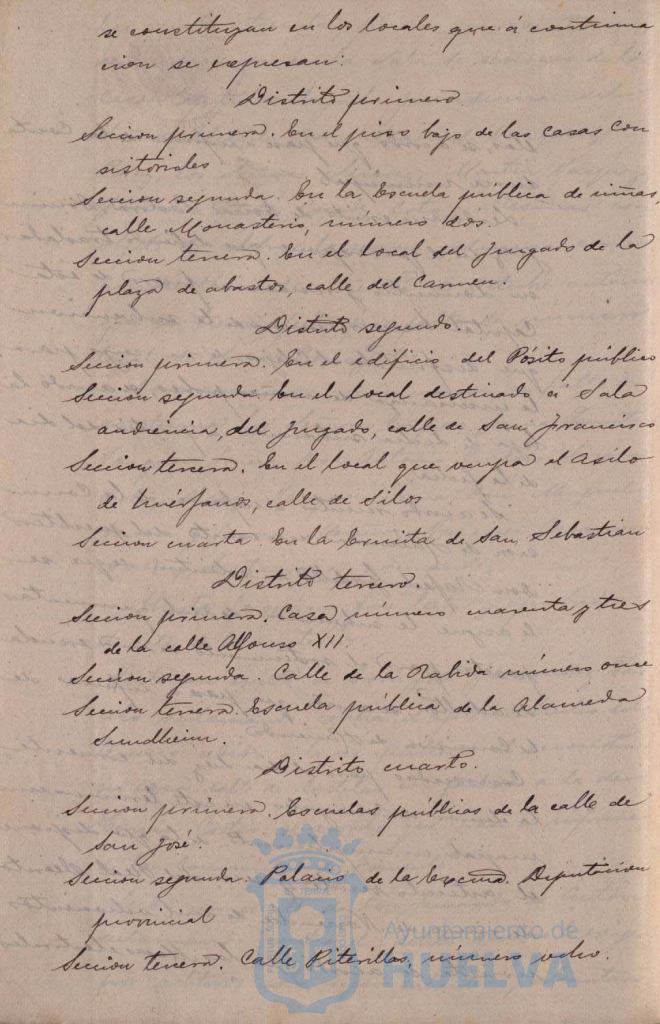 se constituyan en los locales que á continua
cion se expresan:
Distrito primero
Seccion primera. En el piso bajo de las casas con
sistoriales
Seccion segunda. En la Escuela pública de niñas,
calle Monasterio, número dos.
Seccion tercera. En el local del Juzgado de la
plaza de abastos, calle del Carmen.
Distrito segundo.
Seccion primera. En el edificio del Pósito público
Seccion segunda. En el local destinado á Sala
audiencia, del Juzgado, calle de San Francisco
Seccion tercera. En el local que ocupa el Asilo
de huérfanos, calle de Silos
Seccion cuarta. En la Ermita de San Sebastian
Distrito tercero.
Seccion primera. Casa número cuarenta y tres
de la calle Alfonso XII.
Seccion segunda. Calle de la Rabida número once
Seccion tercera. Escuela pública de la Alameda
Sundheim.
Distrito cuarto.
Seccion primera. Escuelas públicas de la calle de
San José.
Seccion segunda. Palacio de la Excma. Diputacion
provincial
Seccion tercera. Calle Piterillas, número ocho.
Ayuntamiento de
HUELVA